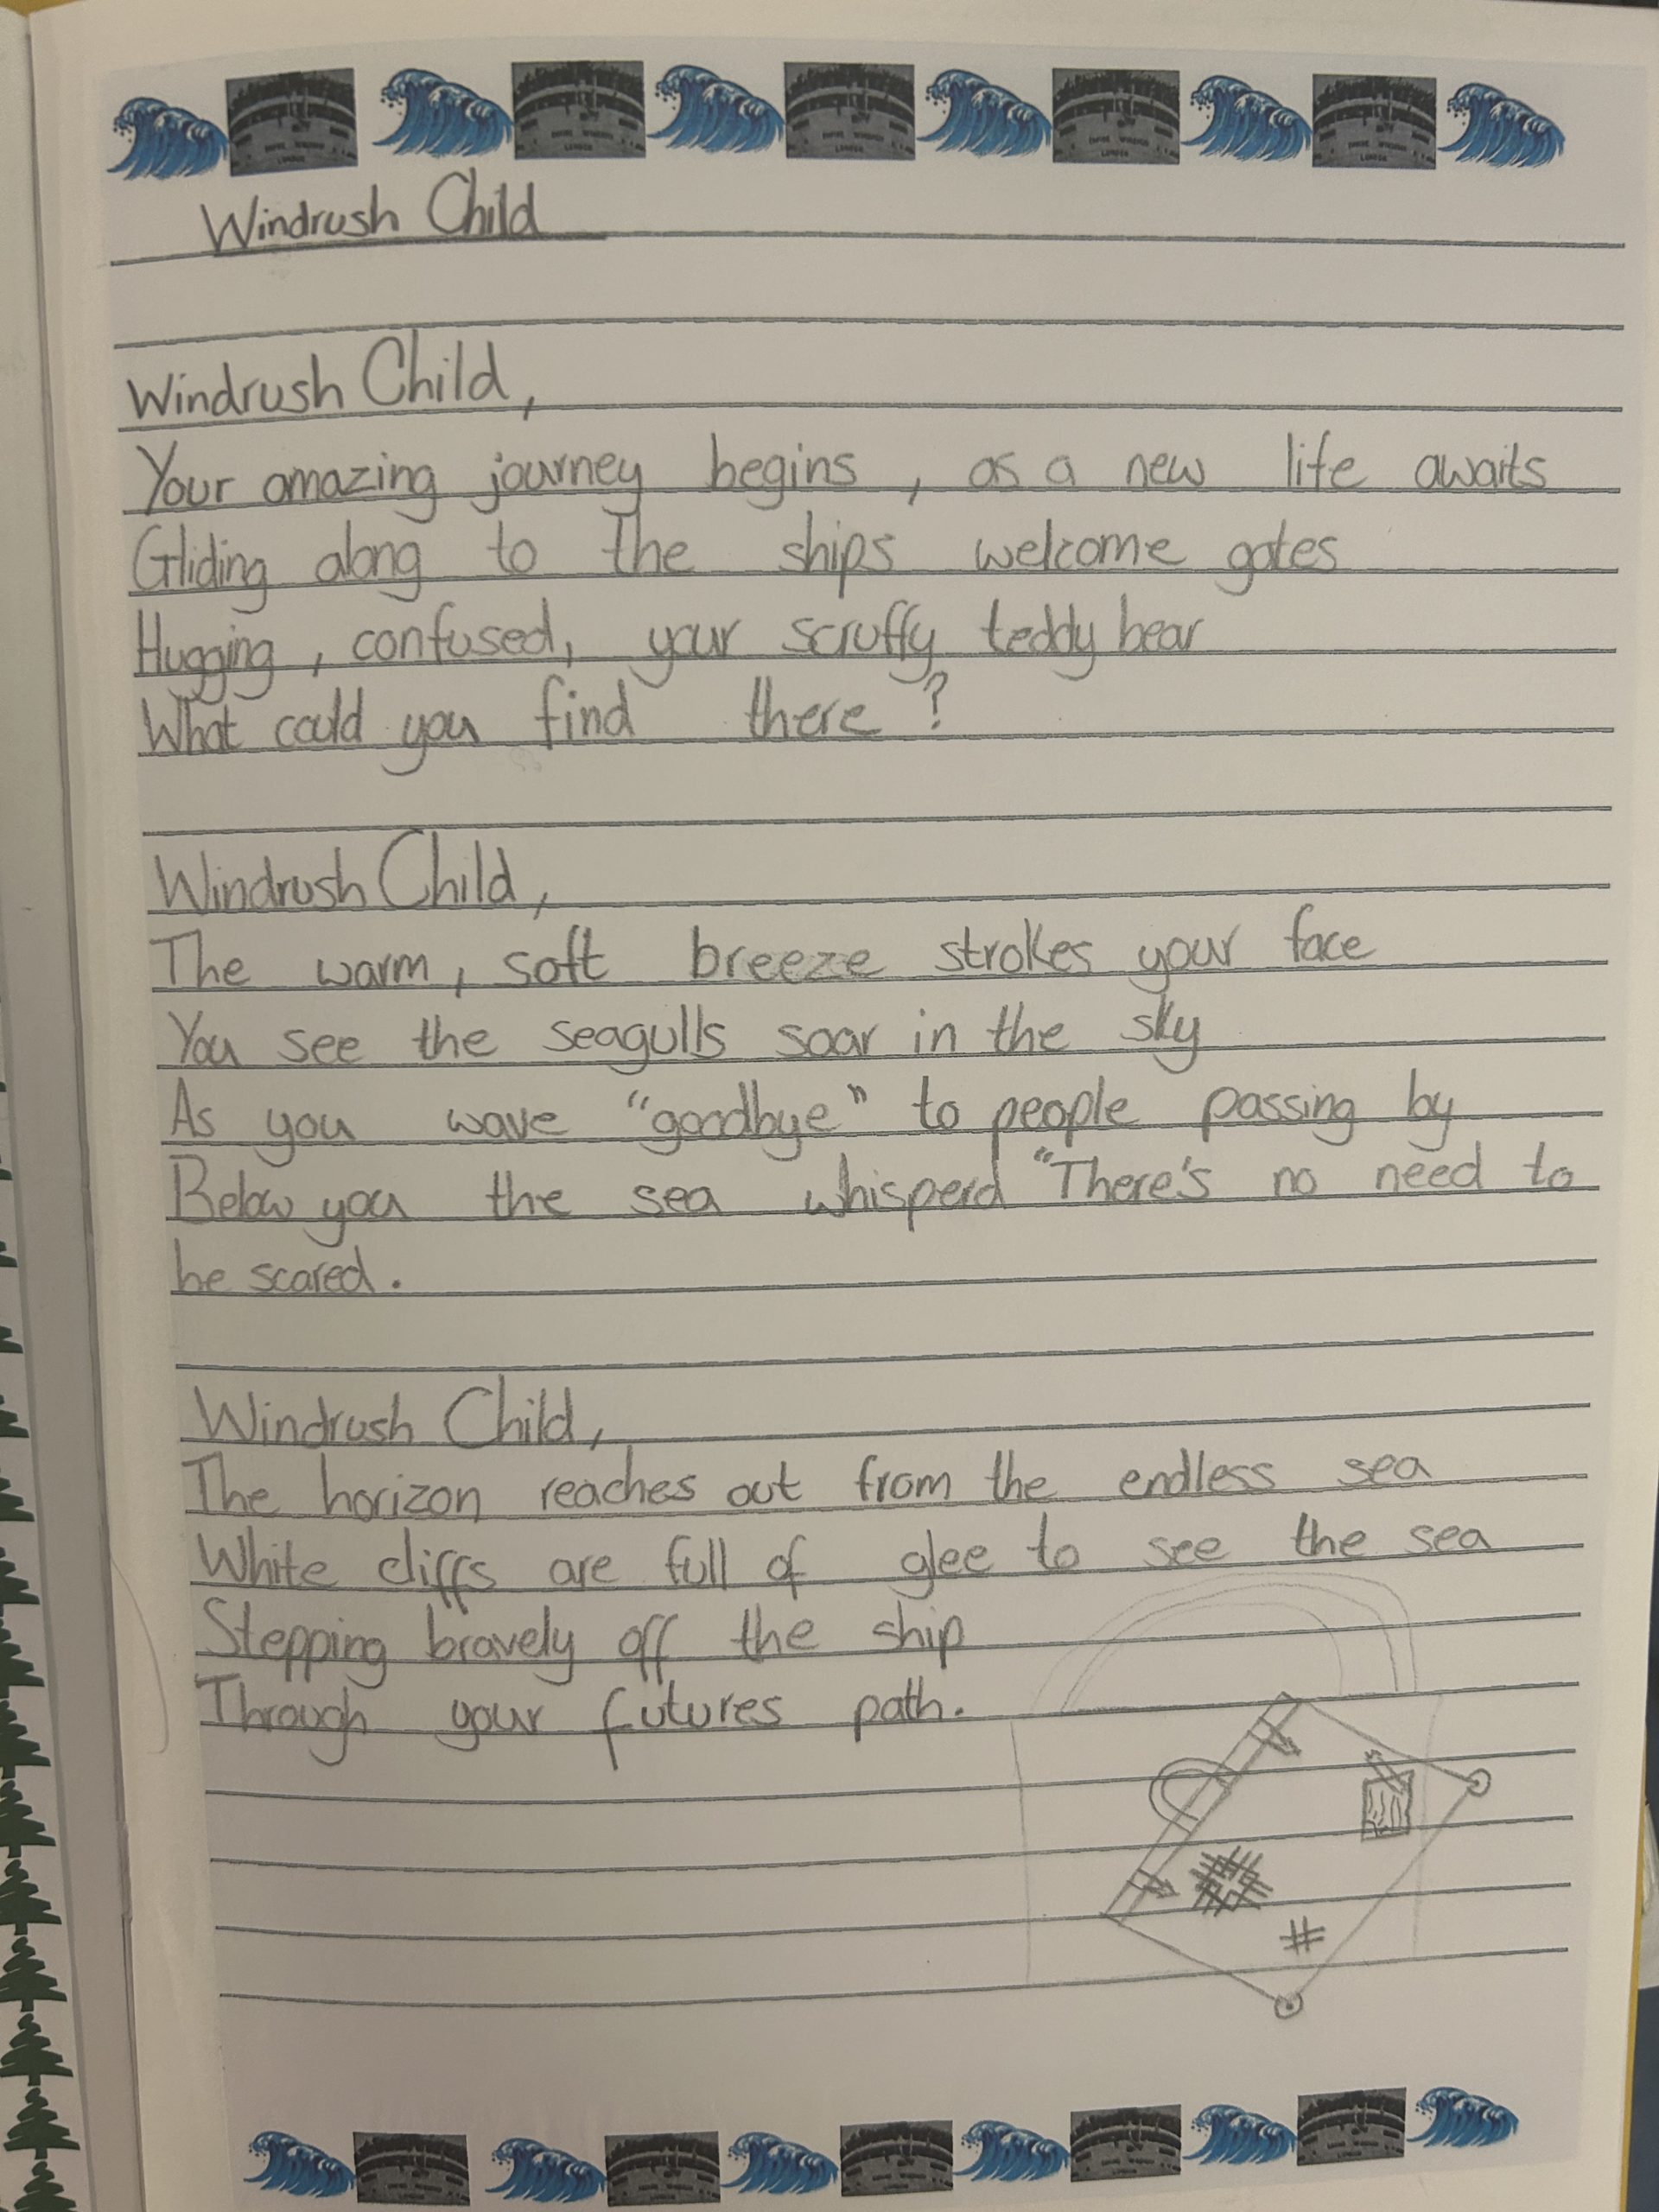 EMPIRE WINDRUSH
LONDON
Windrush Child
Windrush Child,
Your amazing journey begins, as a new life awaits
Gliding along to the ships welcome gates
Hugging, confused, your scruffy teddy bear
What could you find there?
Windrush Child,
The warm, soft breeze strokes your face
You see the seagulls soar in the sky
As you wave "goodbye" to people passing by
Below you the sea whisperd "There's no need to
be scared.
Windrush Child,
The horizon reaches out from the endless sea
White cliffs are full of glee to see the sea
Stepping bravely off the ship
Through your futures path.